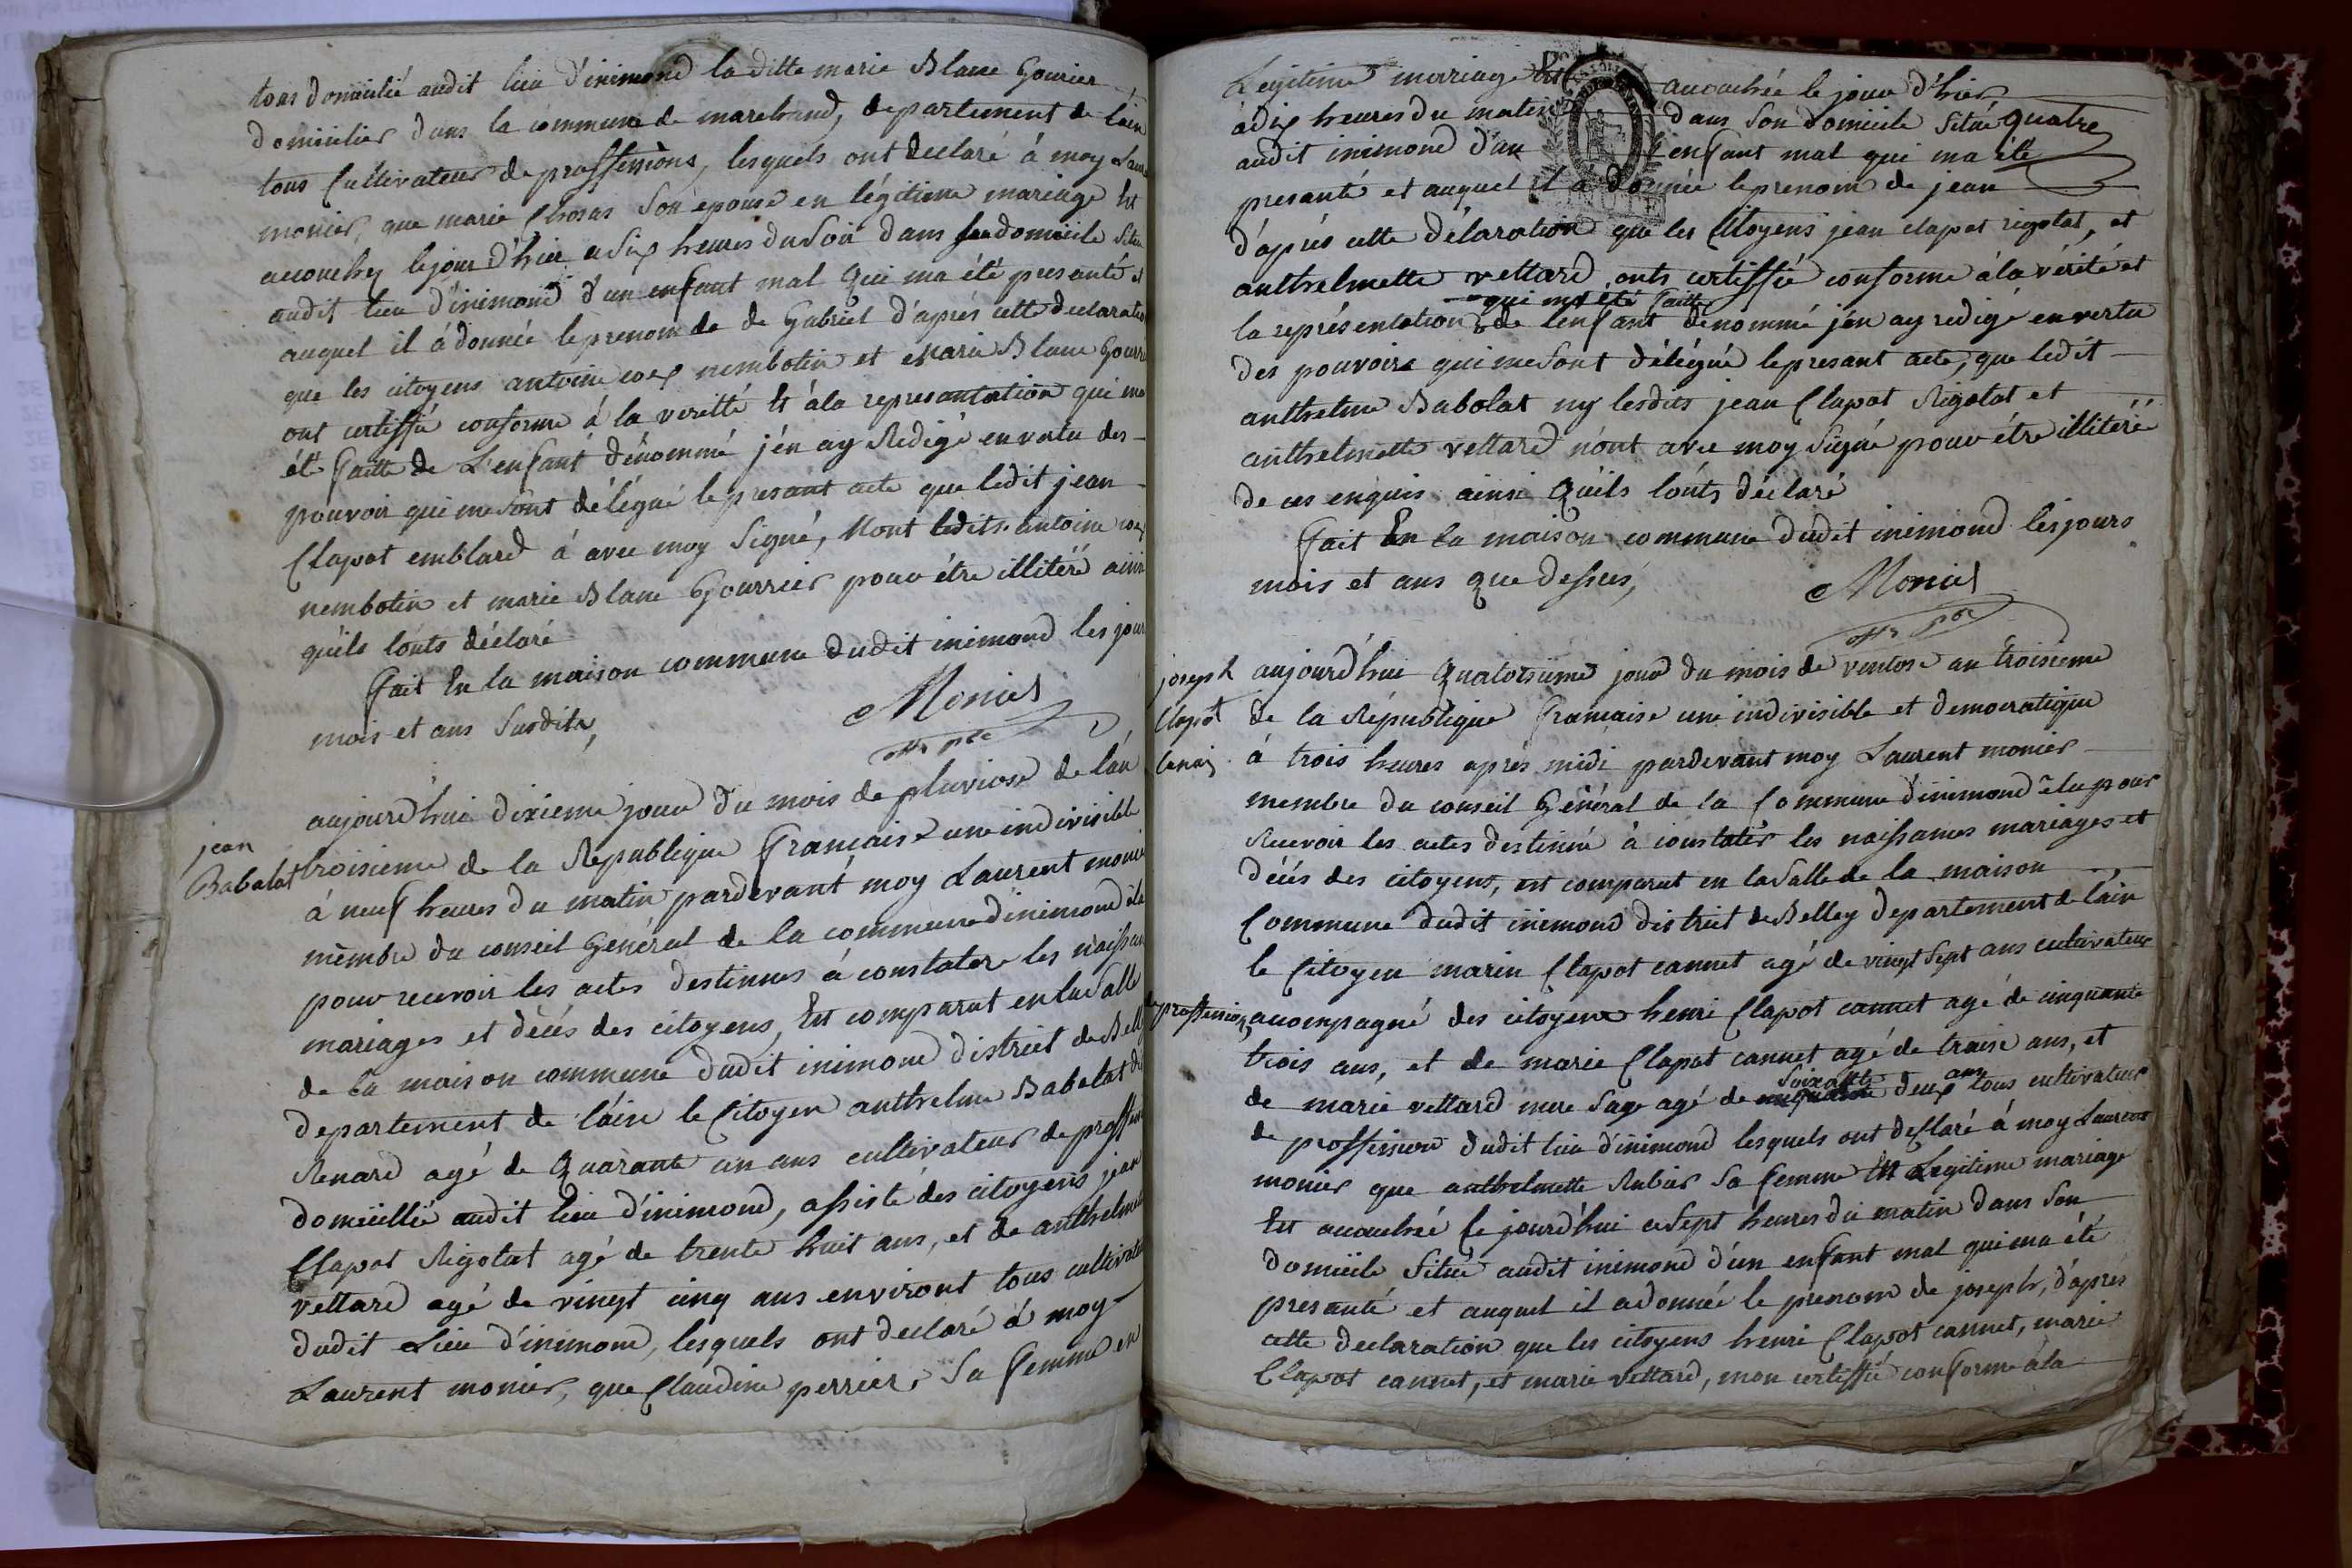 tous domicilié audit lieu d'inimond laditte marie Blanc Gourier
domicilier dans la commune de marchand, departement de lain
tous Cultivateur de proffessions, lesquels ont declaré à moy Laur
monier, que marie Chosas son epouse en légitime mariage Est
accouchez le jour d'hier a six heures du soir dans son domicile situé
audit lieu d'inimond d'un enfant mal qui ma été presanté et
auquel il à donnée le prenom de de Gabriel d'aprés cette declaratio
que les citoyens antoine nembotin et marie Blanc Gourri
ont certiffié conforme á la veritté Et àla representation qui ma
été faitte de L'enfant dénommé j'én ay Redigé en vertu des
pouvoir qui me sont délégué le presant acte que ledit jean
Clapot emblard á avec moy Signé, Nont ledits antoine
nembotin et marie Blanc Gourrier pour étre illitéré ainsi
quils lonts déclaré
fait En la maison commune dudit inimond les jour
mois et ans Susdits,
Monier
off. p.c
jean
Babolat
aujourd'hui dixieme jour du mois de pluviose de lán
troisieme de la Republique française une indivisible
á neuf heures du matin pardevant moy Laurent monie
mèmbre du conseil Genéral de la commune dinimond élu
pour recevoir les actes destinnés à constater les naissan
mariages et décés des citoyens, Est comparut en la Salle
de la maison commune dudit inimond district de Bell
departement de láin le Citoyen anthelme Babolat dit
Renard agé de Quarante un ans cultivateur de proffess
domicillié audit lieu d'inimond, assisté des citoyens jean
Clapot Rigotat agé de trente huit ans, et de anthelmet
vettard agé de vingt cinq ans environt tous cultivateur
dudit Lieu d'inimond, lesquels ont declaré á moy
Laurent monier, que Claudine perrier, Sa femme en
Legitime mariage Est accouchée le jour d'hier
à dix heures du matin dans son domicile situé quatre
audit inimond d'un enfant mal qui ma été
presanté et auquel il a donnée le prenom de jean
d'aprés cette délaration que les Citoyens jean clapot rigotat, et
anthelmette vettard onts certiffié conforme á la vérité et
qui ma été faitte
la représentation de lénfant denommé j'en ay redigé en vertu
des pouvoirs qui me sont délégué le presant acte, que ledit
anthelme Babolat ny lesdits jean Clapot Rigotat et
anthelmette vettard nónt avec moy Signé pour étre illitéré
de ces enquis ainsi Quils lónts déclaré
fait En la maison commune dudit inimond les jours
mois et ans que dessus,
Monier
off. p.c
joseph
Clapot
Canet
aujourd'hui Quatorsieme jour du mois de ventose an troisieme
de la République francaise une indivisible et democratique
à trois heures aprés midi pardevant moy Laurent monier
membre du conseil Général de la Commune dinimond élu pour
Recevoir les actes destinné à constatér les naissances mariages et
décés des citoyens, est comparut en la Salle de la maison
Commune dudit inimond district de Belley departement de láin
le Citoyen marin Clapot cannet agé de vingt Sept ans cultivateur
de proffession, acompagné des citoyens henri Clapot cannet agé de cinquante
trois ans, et de marie Clapot cannet agé de traise ans, et
soixante ans
de marie vettard mere Sage agé de cinquante deux tous cultivateur
de proffession dudit lieu d'inimond lesquels ont desclaré á moy Laurent
monier que anthelmette Rubier sa femme En Legitime mariage
Est accouchée ce jourd'hui a Sept heures du matin dans Son
domicile Situé audit inimond d'un enfant mal qui ma été
presanté et auquel il adonnée le prenom de joseph, d'aprés
cette declaration que les citoyens henri Clapot cannet, marie
Clapot cannet, et marie vettard, mon certiffié conforme àla